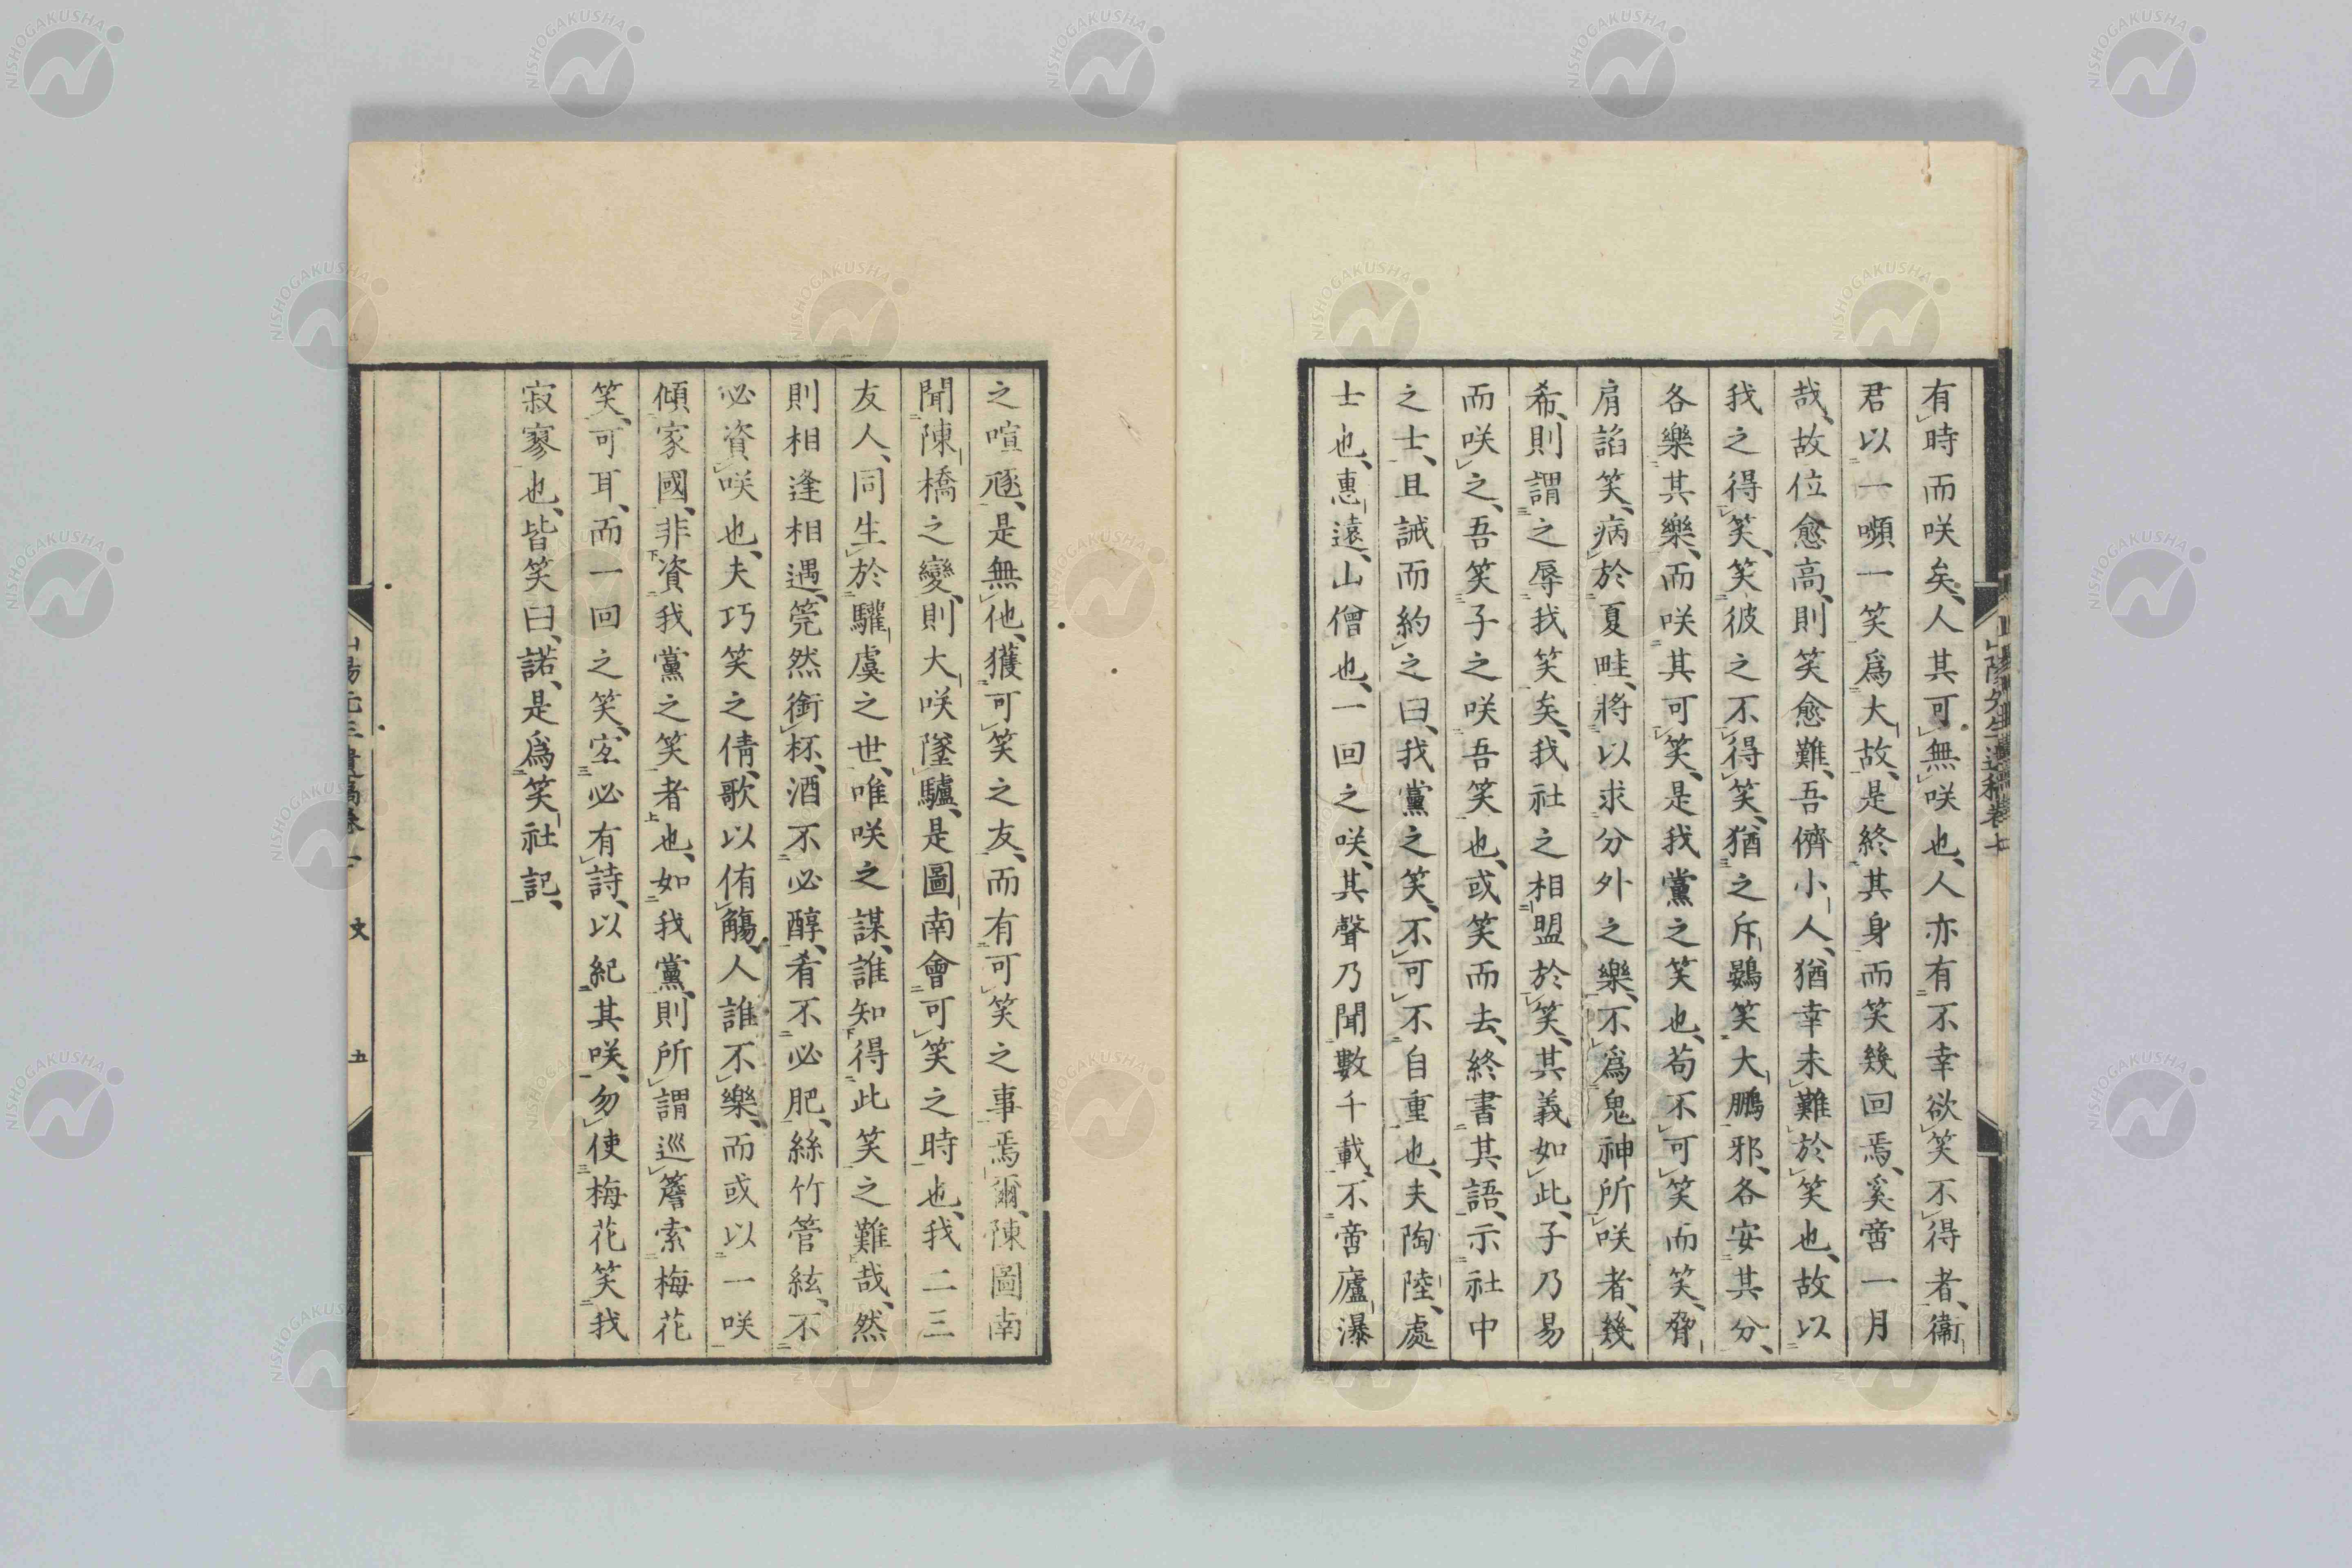 有時而咲矣、人其可無咲也、人亦有不幸欲笑不得者、衞
君以一嚬一笑爲大故、是終其身而笑幾回焉、奚啻一月
哉、故位愈高、則笑愈難、吾儕小人、猶幸未難於笑也、故以
我之得笑、笑彼之不得笑、猶之斥鷃笑大鵬邪、各安其分、
各樂其樂、而咲其可笑、是我黨之笑也、苟不可笑而笑、脅
肩諂笑、病於夏畦、將以求分外之樂、不爲鬼神所咲者、幾
希、則謂之辱我笑矣、我社之相盟於笑、其義如此、子乃易
而咲之、吾笑子之咲吾笑也、或笑而去、終書其語、示社中
之士、且誡而約之曰、我黨之笑、不可不自重也、夫陶陸、處
士也、惠遠、山僧也、一回之咲、其聲乃聞數千載、不啻廬瀑
之喧豗、是無他、獲可笑之友、而有可笑之事焉爾、陳圖南
聞陳橋之變、則大咲墜驢、是圖南會可笑之時也、我二三
友人、同生於驩虞之世、唯咲之謀、誰知得此笑之難哉、然
則相逢相遇、筦然銜杯、酒不必醇、肴不必肥、絲竹管絃、不
必資咲也、夫巧笑之倩、歌以侑觴、人誰不樂、而或以一咲
傾家國、非資我黨之笑者也、如我黨、則所謂巡簷索梅花
笑、可耳、而一回之笑、㝎必有詩、以紀其咲、勿使梅花笑我
寂寥也、皆笑曰、諾、是爲笑社記、
文
五
NISHOGAKUSHA